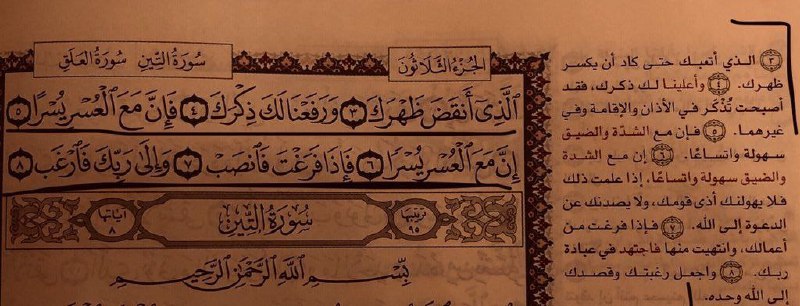 سُورَةُ التِّينِ سُورَةُ العَلَقِ
الجُزْءُ الثَّلَاثُونَ
ٱلَّذِىٓ أَنقَضَ ظَهْرَكَ ٣ وَرَفَعْنَا لَكَ ذِكْرَكَ ٤ فَإِنَّ مَعَ ٱلْعُسْرِ يُسْرًا ٥
إِنَّ مَعَ ٱلْعُسْرِ يُسْرًا ٦ فَإِذَا فَرَغْتَ فَٱنصَبْ ٧ وَإِلَىٰ رَبِّكَ فَٱرْغَب ٨
ترتيبها ٩٥
سُورَةُ التِّينِ
آياتها ٨
بِسْمِ ٱللَّهِ ٱلرَّحْمَٰنِ ٱلرَّحِيمِ
٣ الذي أتعبك حتى كاد أن يكسر
ظهرك. ٤ وأعلينا لك ذكرك، فقد
أصبحت تُذْكَر في الأذان والإقامة وفي
غيرهما. ٥ فإن مع الشدّة والضيق
سهولة واتساعًا. ٦ إن مع الشدة
والضيق سهولة واتساعًا، إذا علمت ذلك
فلا يهولنك أذى قومك، ولا يصدنك عن
الدعوة إلى الله. ٧ فإذا فرغت من
أعمالك، وانتهيت منها فاجتهد في عبادة
ربك. ٨ واجعل رغبتك وقصدك
إلى الله وحده.